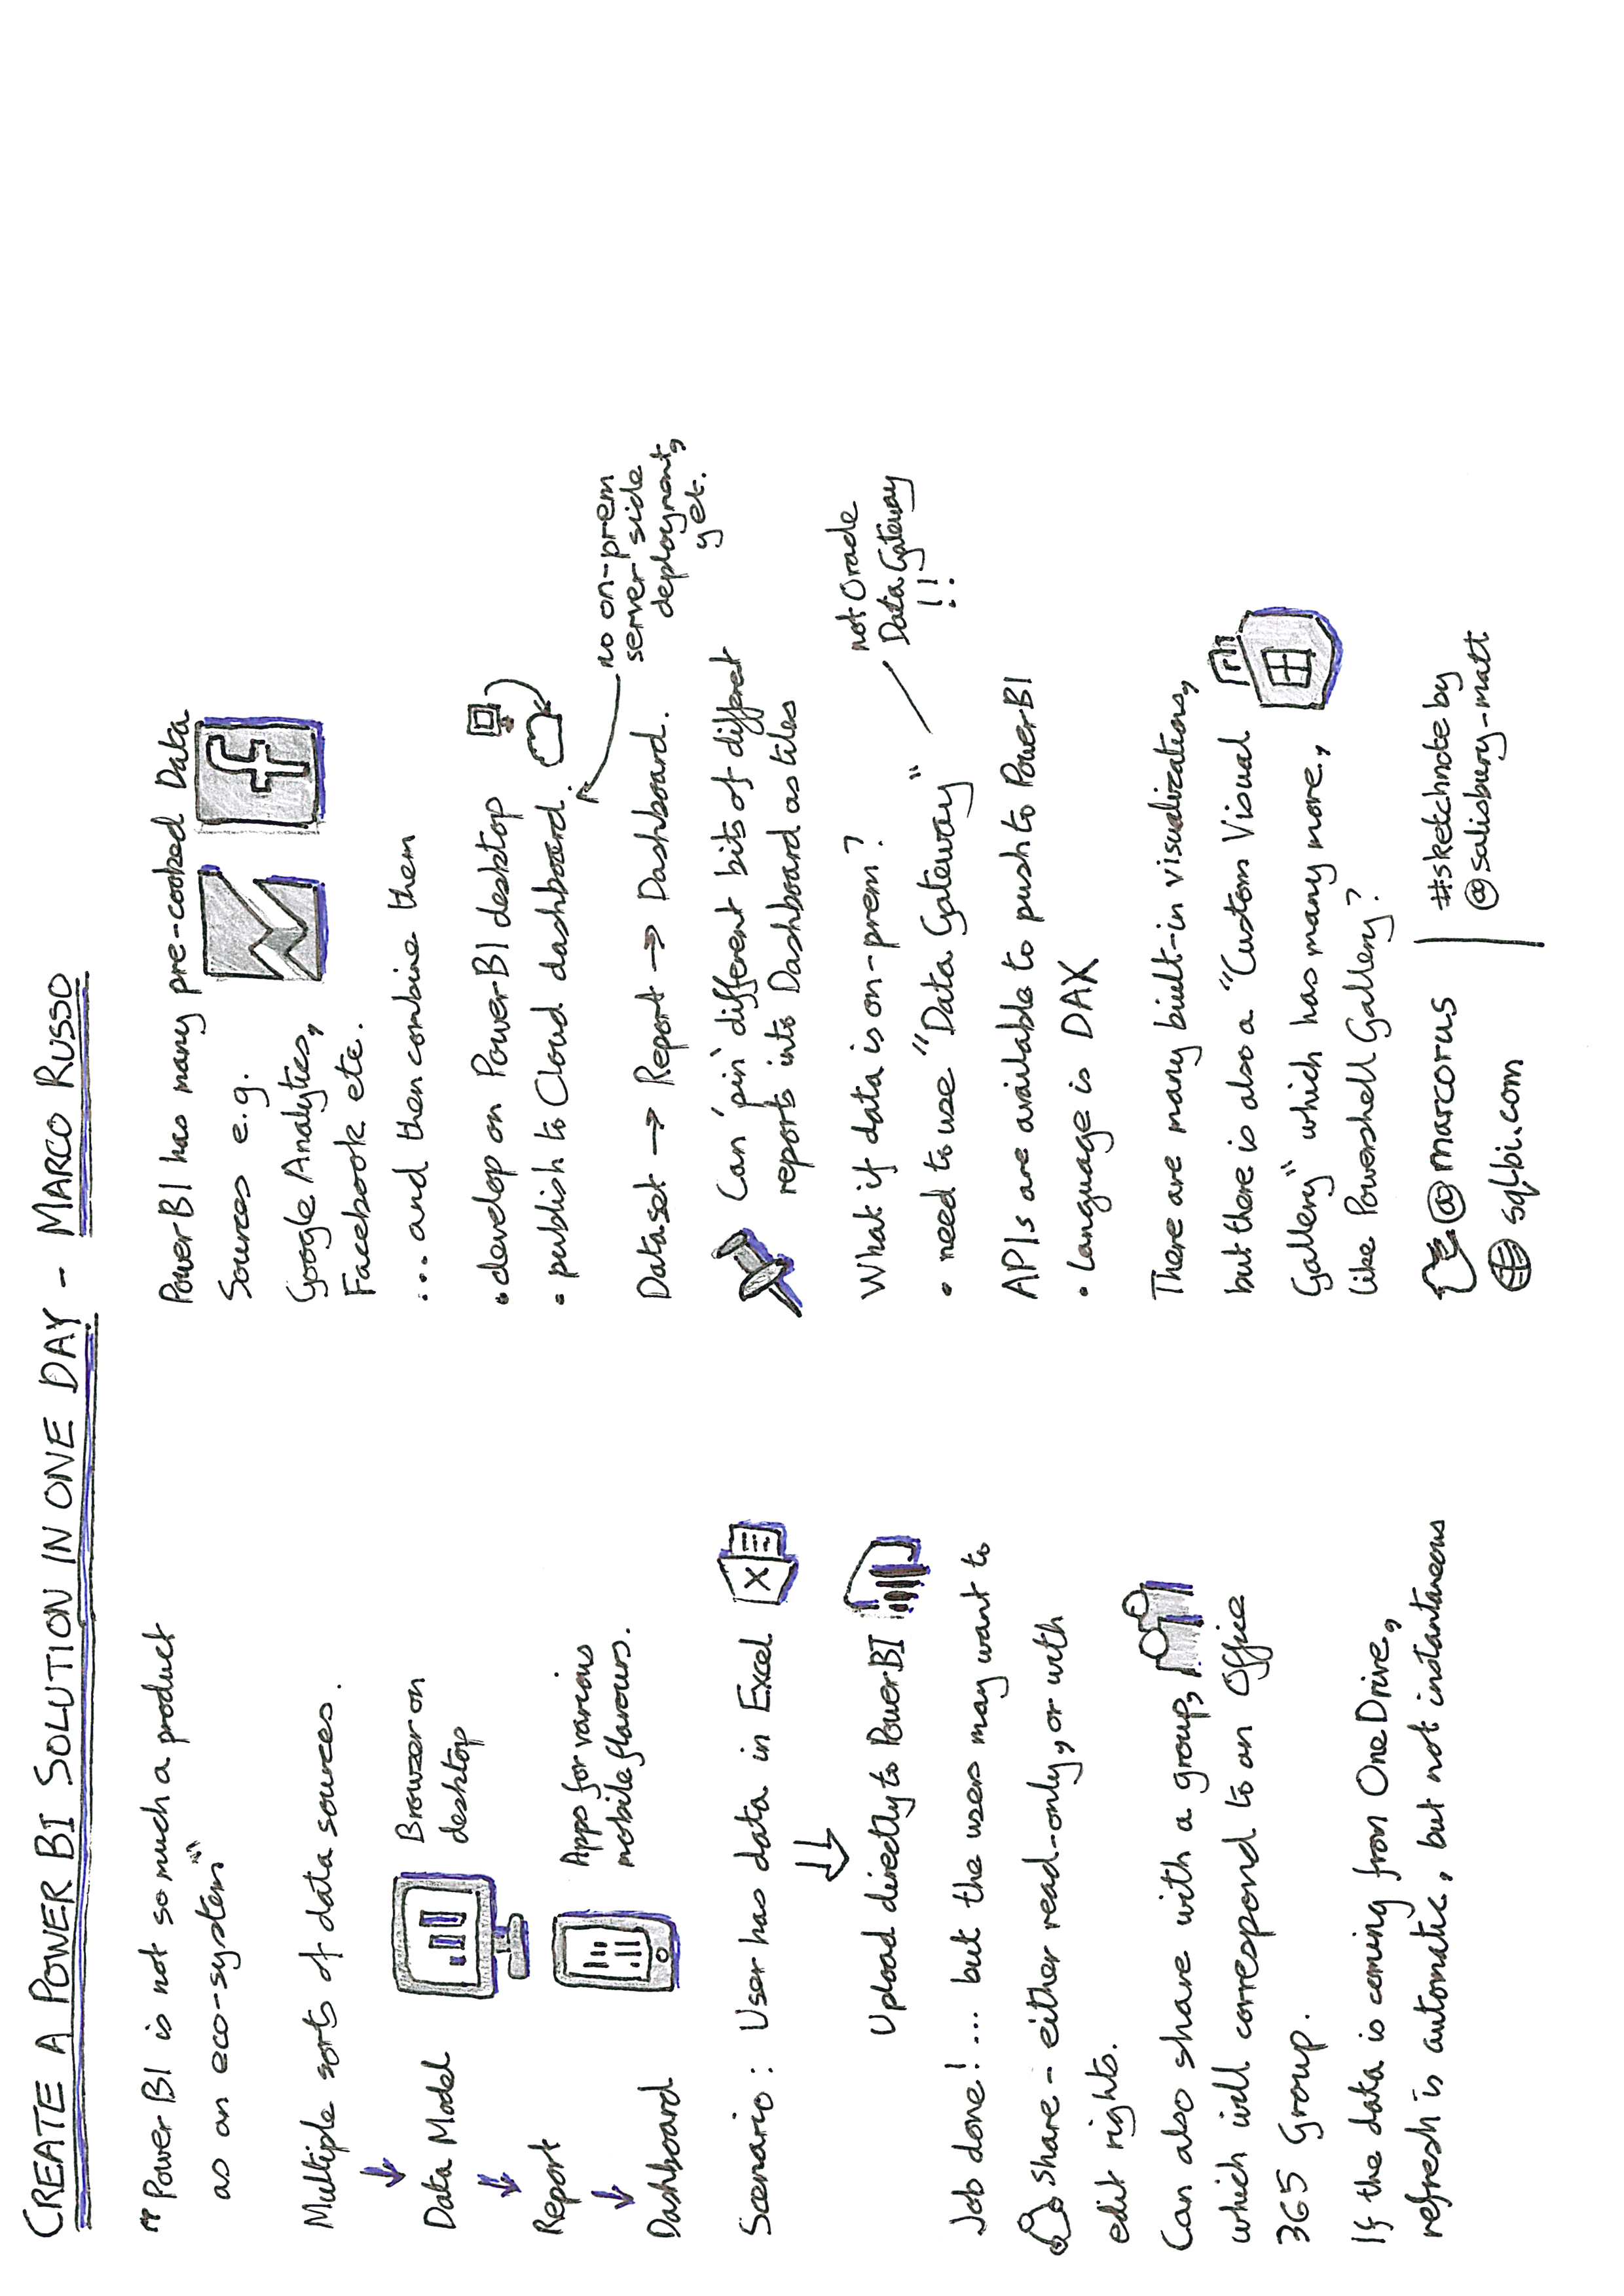 CREATE A POWER BI SOLUTION IN ONE DAY - MARCO RUSSO
"Power BI is not so much a product
as an eco-system"
Multiple sorts of data sources.
Data Model
Report
Dashboard
Browzer on
desktop
Apps for various
mobile flavours.
Scenario: User has data in Excel
X
Upload directly to PowerBI
Job done! ... but the users may want to
share - either read-only, or with
edit rights.
Can also share with a group,
which will correspond to an Office
365 Group.
If the data is coming from OneDrive,
refresh is automatic, but not instantaneous
PowerBI has many pre-cooked Data
Sources e.g.
Google Analytics,
Facebook etc.
f
... and then combine them
• develop on PowerBI desktop
• publish to Cloud dashboard.
no on-prem
server side
deployment,
yet.
Dataset → Report → Dashboard.
Can 'pin' different bits of differet
reports into Dashboard as tiles
What if data is on-prem?
• need to use "Data Gateway"
not Oracle
Data Gateway
!!
APIs are available to push to PowerBI
• language is DAX
There are many built-in visualizations,
but there is also a "Custom Visual
Gallery" which has many more,
like Powershell Gallery?
@marcorus
sqlbi.com
#sketchnote by
@salisbury_matt